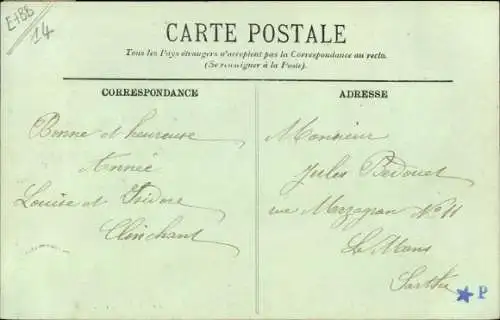 E7BB
14
CARTE POSTALE
Tous les Pays étrangers n'acceptent pas la Correspondance au recto.
(Se renseigner à la Poste).
CORRESPONDANCE
Bonne et heureuse
Année
Louise et Isidore
Clinchant
ADRESSE
Monsieur
Jules Bedouet
rue Mazagran No 11
Le Mans
Sarthe
P